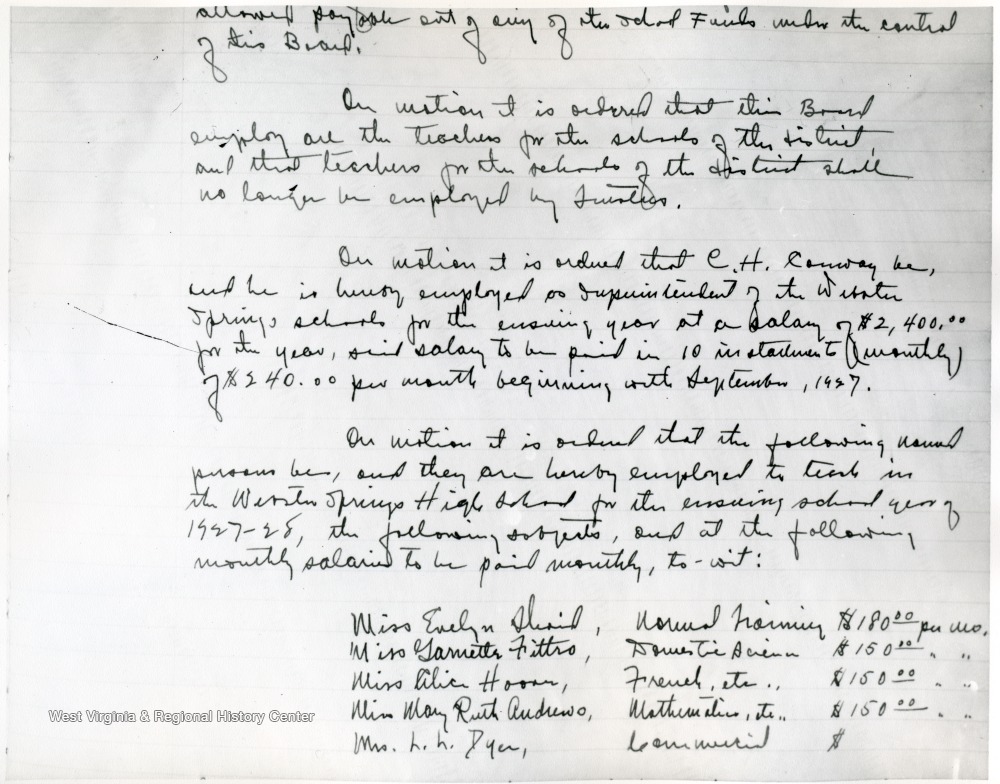 allowed payable out of any of the School Funds under the control
of this Board.
On motion it is ordered that this Board
employ all the teachers for the schools of the District,
and that teachers for the schools of the District shall
no longer be employed by Trustees.
On motion it is ordered that C. H. Conway be,
and he is hereby employed as Superintendent of the Webster
Springs schools for the ensuing year at a salary of $2,400.00
for the year, said salary to be paid in 10 installments (monthly)
of $240.00 per month beginning with September, 1927.
On motion it is ordered that the following named
persons be, and they are hereby employed to teach in
the Webster Springs High School for the ensuing school year of
1927-28, the following subjects, and at the following
monthly salaries to be paid monthly, to-wit:
Miss Evelyn , Normal Training $180.00 per mo.
Miss Garnette Fittro, Domestic Science $150.00 " "
Miss Alice Hoover, French, etc., $150.00 " "
Miss Mary Ruth Andrews, Mathematics, etc., $150.00 " "
West Virginia & Regional History Center
Mrs. L. L. Dyer, Commercial $